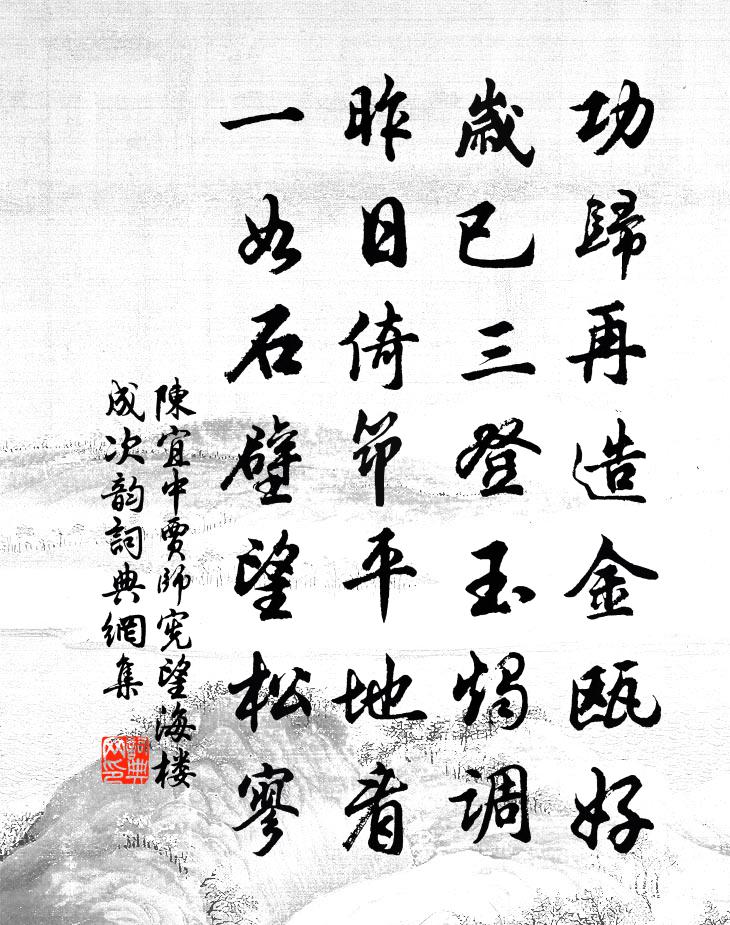 功歸再造金甌好
歲已三登玉燭調
昨日倚筇平地看
一如石壁望松寥
陳宜中賈師宪望海楼
成次韵詞典網集
詞典
网印